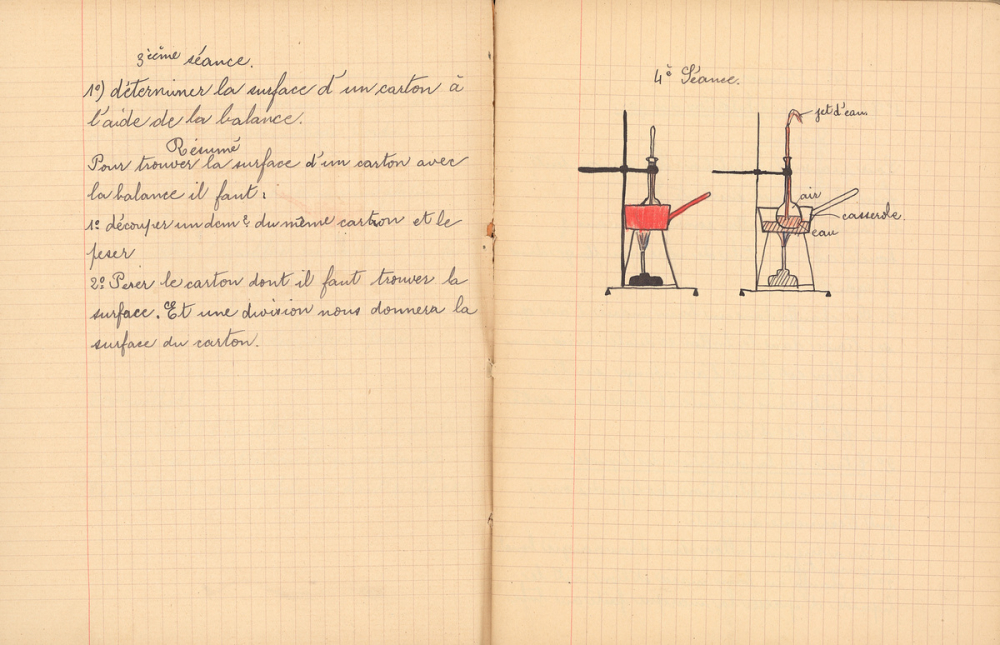 3ième séance.
1º) déterminer la surface d'un carton à
l'aide de la balance.
Résumé
Pour trouver la surface d'un carton avec
la balance il faut :
1º découper un dcm² du même carton et le
peser
2º Peser le carton dont il faut trouver la
surface. Et une division nous donnera la
surface du carton.
4è Séance.
jet d'eau
air
casserole
eau